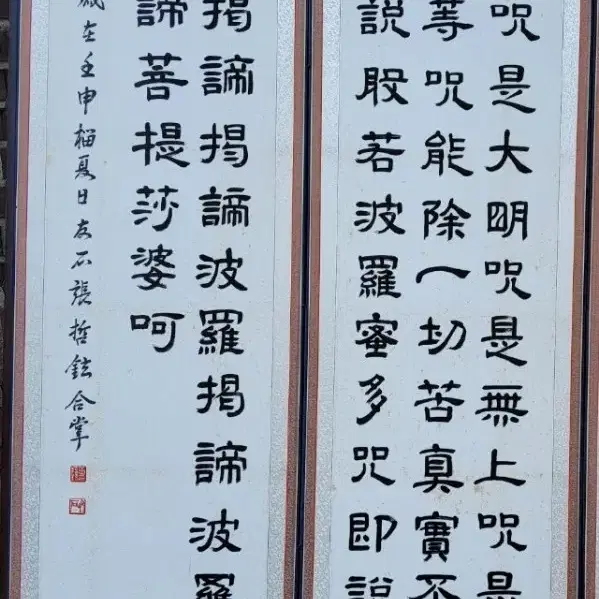 呪是大明呪是無上呪是
等呪能除一切苦真實不
說般若波羅蜜多呪即說
揭諦揭諦波羅揭諦波羅
諦菩提莎婆呵
歲在壬申榴夏日友石張哲鉉合掌